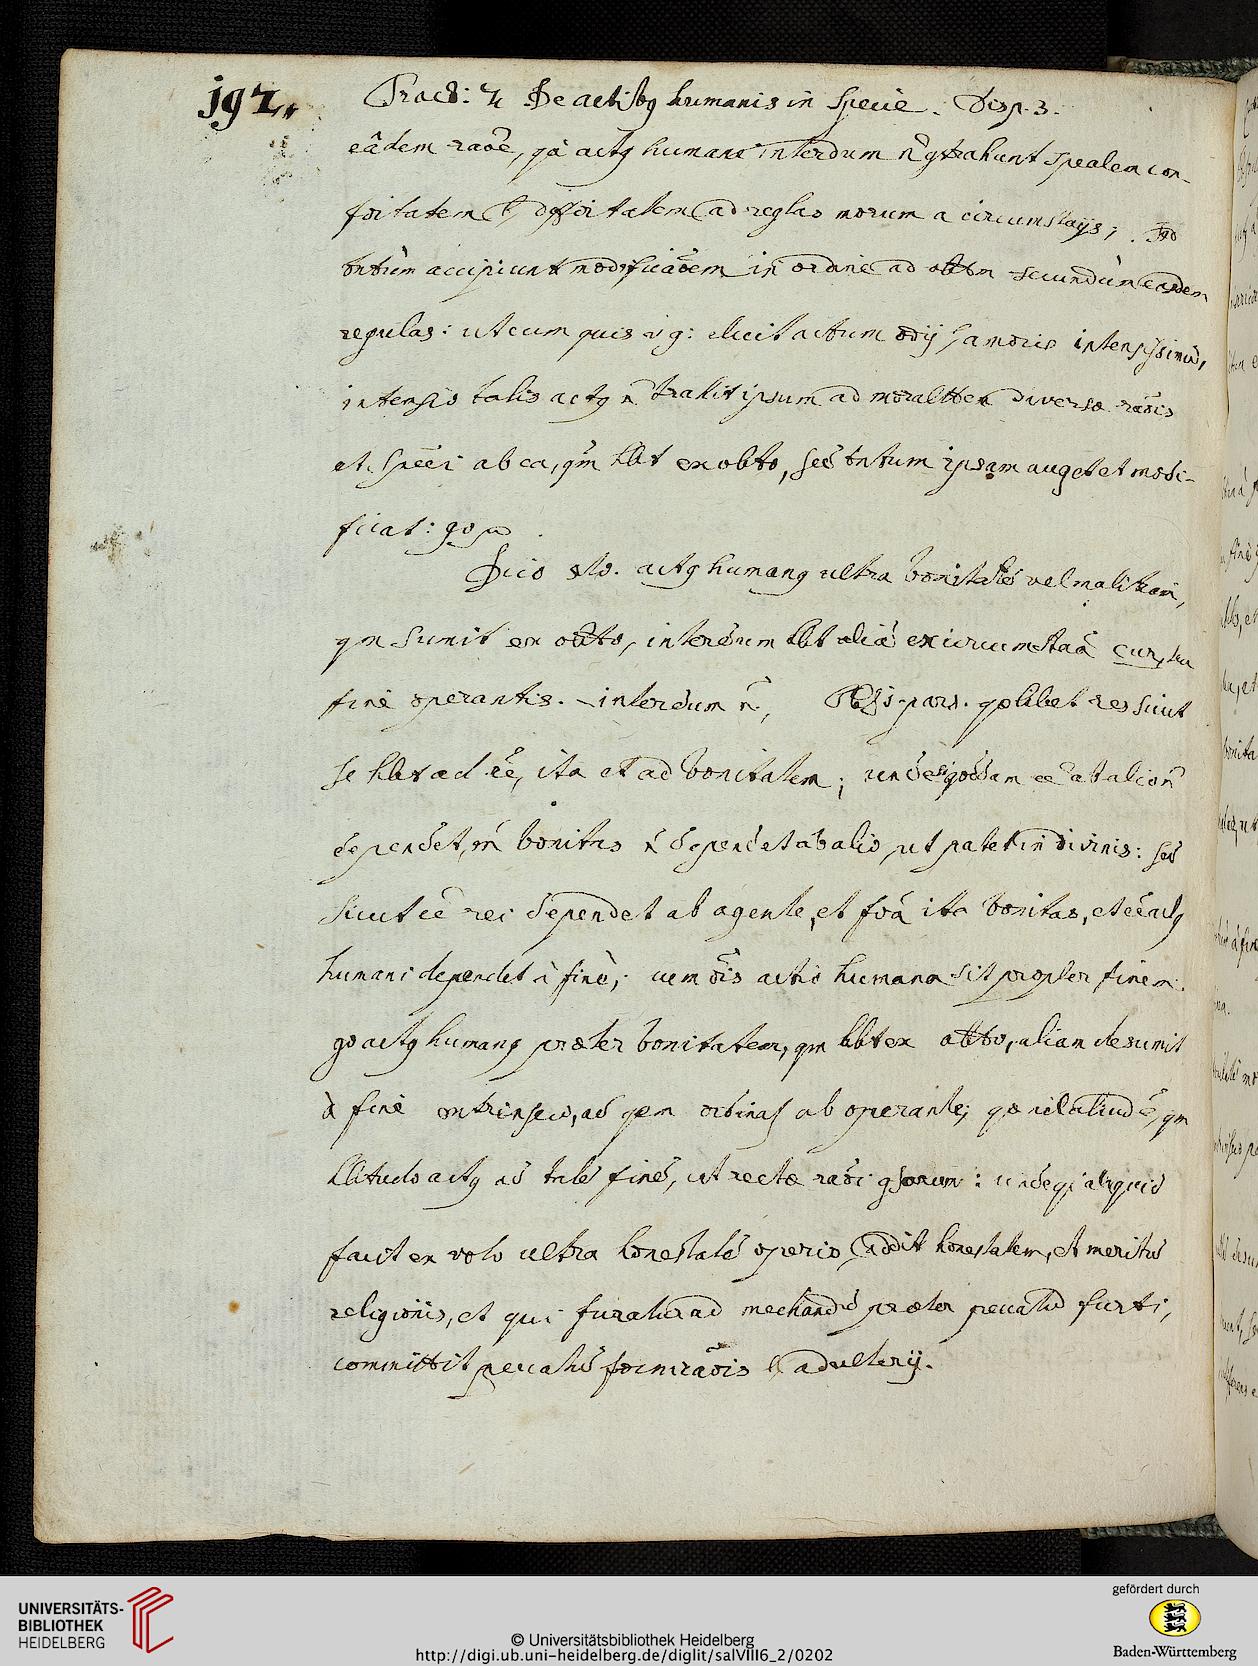 192.
Tract: 2 De actibg humanis in Specie. Disp. 3.
eâdem raoē, qâ actg humani interdum n̄ gtrahunt spealem con-
foitatem l, dffoitatem ad reglas morum a circumstaijs;
tntùm accipiunt modificaōem in ordine ad obtm secundùm easdem
regulas: ut cum quis v g: elicit actum odij l, amoris intensissimū,
intensio talis actg n̄ trahit ipsum ad moralttem diversæ raōis
et spēei ab ea, qm̄ hbt ex obto, sed tntum ipsam auget et modi-
ficat: go
Dico 2do. actg humang ultra bonitatē vel malitiam,
qm sumit ex obto, interdum hbt aliā ex circumstaā cur, seu
fine operantis. interdum n̄, pars. qælibet res sicut
se hbt ad ēe, ita et ad bonitatem; unde qoddam ēe ab alio n̄
dependet, bonitas n̄ dependet ab alio, ut patet in divinis: sed
sicut ēe rei dependet ab agente, et foâ ita bonitas, et ēe actg
humani dependet à fine; cum ōis actio humana sit propter finem:
go actg humang præter bonitatem, qm hbt ex obto, aliam desumit
à fine extrinseco, ad qem ordinas ab operante; qæ nil aliud ē, qm
hbitudo actg ad tale finē, ut rectæ raōi gsorum: unde qi aliquid
facit ex voto ultra honestatē operis, addit honestatem, et meritū
religionis, et qui furatur ad mechandū præter peccatū furti,
committit peccatū fornicaōis l, adulterij.
UNIVERSITÄTS-
BIBLIOTHEK
HEIDELBERG
© Universitätsbibliothek Heidelberg
http://digi.ub.uni-heidelberg.de/diglit/salVIII6_2/0202
gefördert durch
Baden-Württemberg